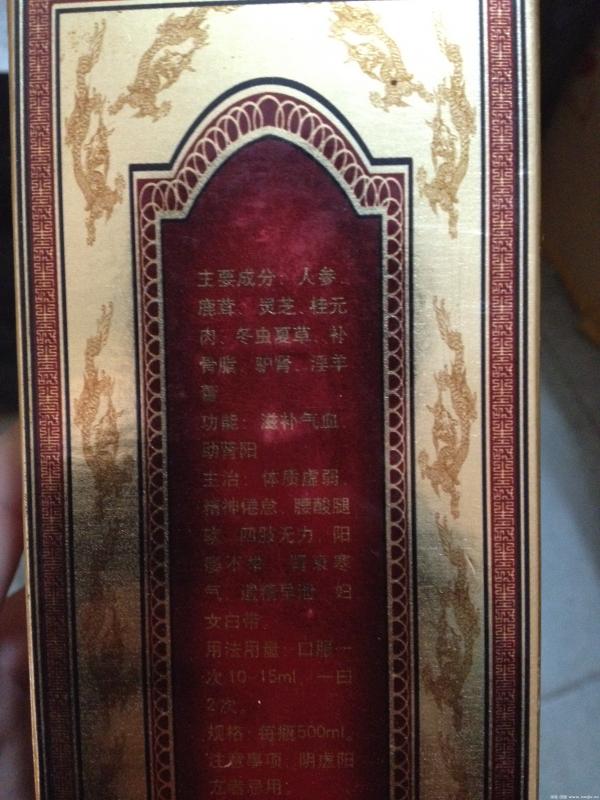 主要成分：人参、
鹿茸、灵芝、桂元
肉、冬虫夏草、补
骨脂、驴肾、淫羊
藿
功能：滋补气血，
助肾阳
主治：体质虚弱，
精神倦怠，腰酸腿
软，四肢无力，阳
不 肾 寒
气，遗精早泄，妇
女白带。
用法用量：口服一
次10-15ml，一日
2次。
规格：每瓶500ml。
注意事项：阴虚阳
亢者忌用；